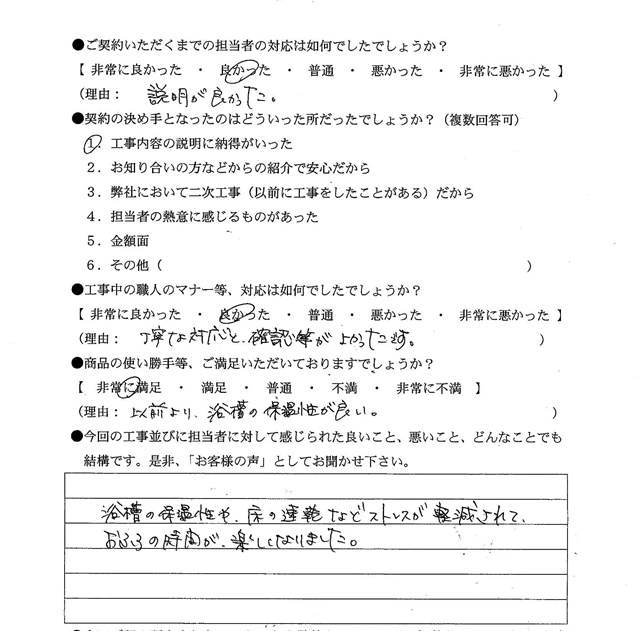 ●ご契約いただくまでの担当者の対応は如何でしたでしょうか?
【 非常に良かった ・ 良かった ・ 普通 ・ 悪かった ・ 非常に悪かった 】
(理由: 説明が良かった。 )
●契約の決め手となったのはどういった所だったでしょうか?(複数回答可)
1.工事内容の説明に納得がいった
2.お知り合いの方などからの紹介で安心だから
3.弊社において二次工事(以前に工事をしたことがある)だから
4.担当者の熱意に感じるものがあった
5.金額面
6.その他( )
●工事中の職人のマナー等、対応は如何でしたでしょうか?
【 非常に良かった ・ 良かった ・ 普通 ・ 悪かった ・ 非常に悪かった 】
(理由: 丁寧な対応と、確認等がよかったです。 )
●商品の使い勝手等、ご満足いただいておりますでしょうか?
【 非常に満足 ・ 満足 ・ 普通 ・ 不満 ・ 非常に不満 】
(理由: 以前より、浴槽の保温性が良い。 )
●今回の工事並びに担当者に対して感じられた良いこと、悪いこと、どんなことでも
結構です。是非、「お客様の声」としてお聞かせ下さい。
浴槽の保温性や、床の速乾などストレスが軽減されて、
おふろの時間が、楽しくなりました。